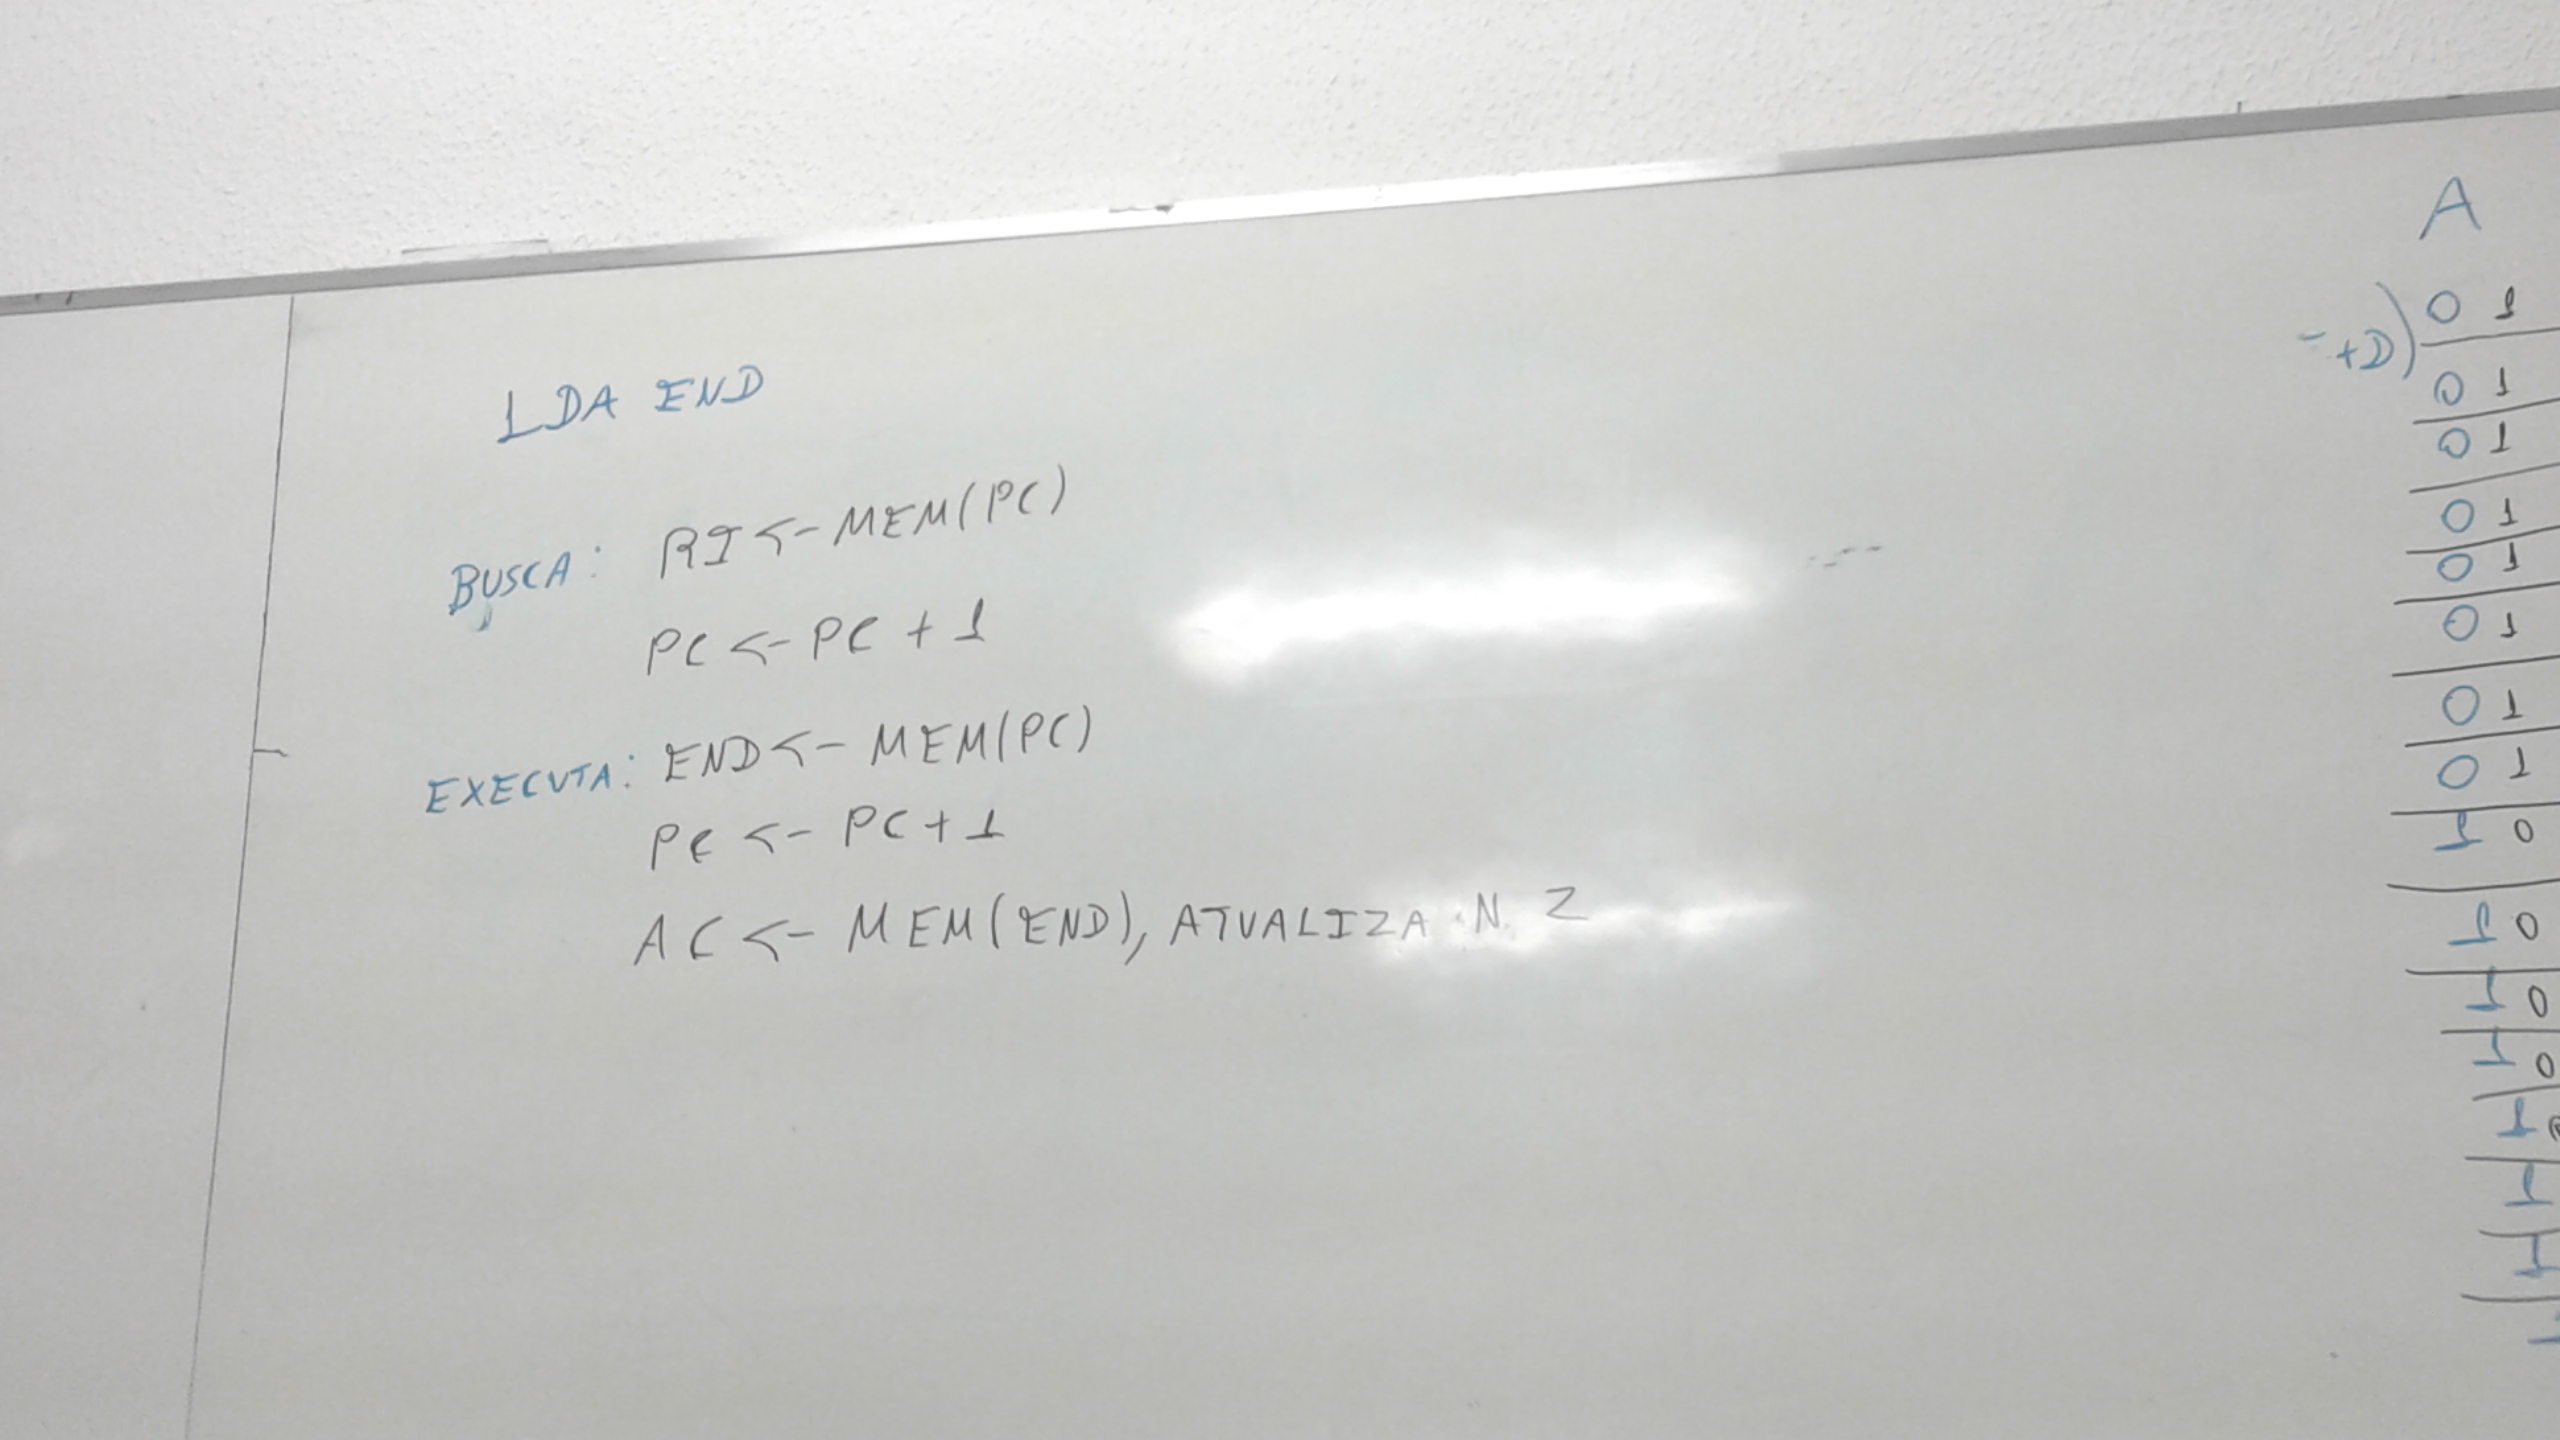 LDA END
BUSCA: RI <- MEM(PC)
PC <- PC + 1
EXECUTA: END <- MEM(PC)
PC <- PC + 1
AC <- MEM(END), ATUALIZA N, Z
A
+D) 0 1
0 1
0 1
0 1
0 1
0 1
0 1
0 1
1 0
1 0
1 0
1 0
1
1
1